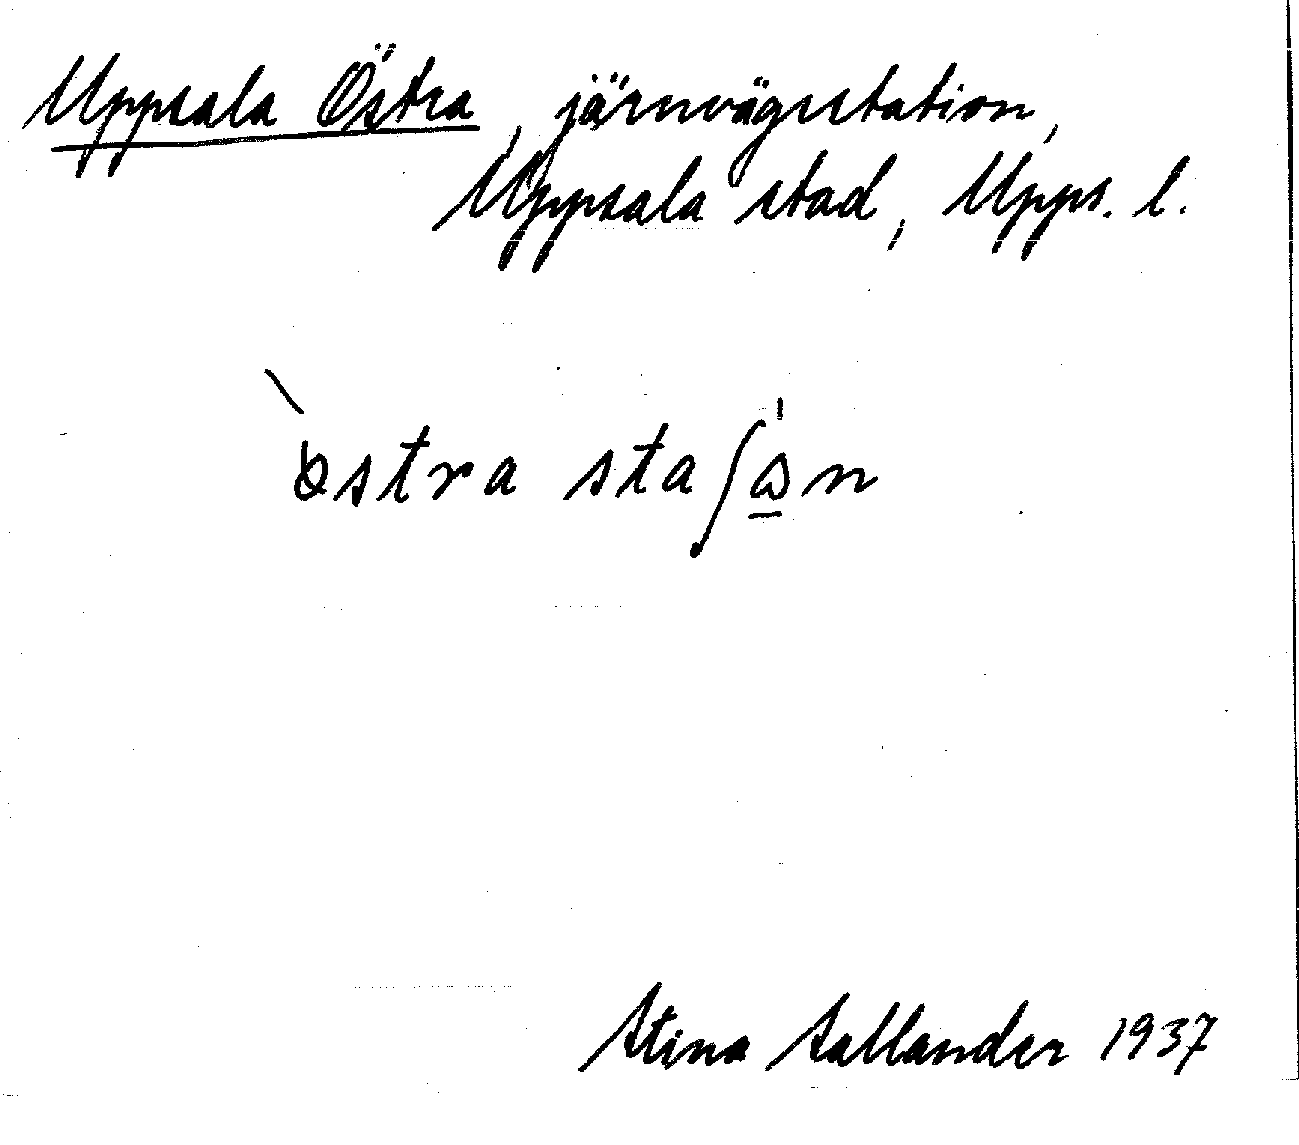 Uppsala Östra, järnvägsstation,
Uppsala stad, Upps. l.
östra staʃω̲n
Stina Sallander 1937